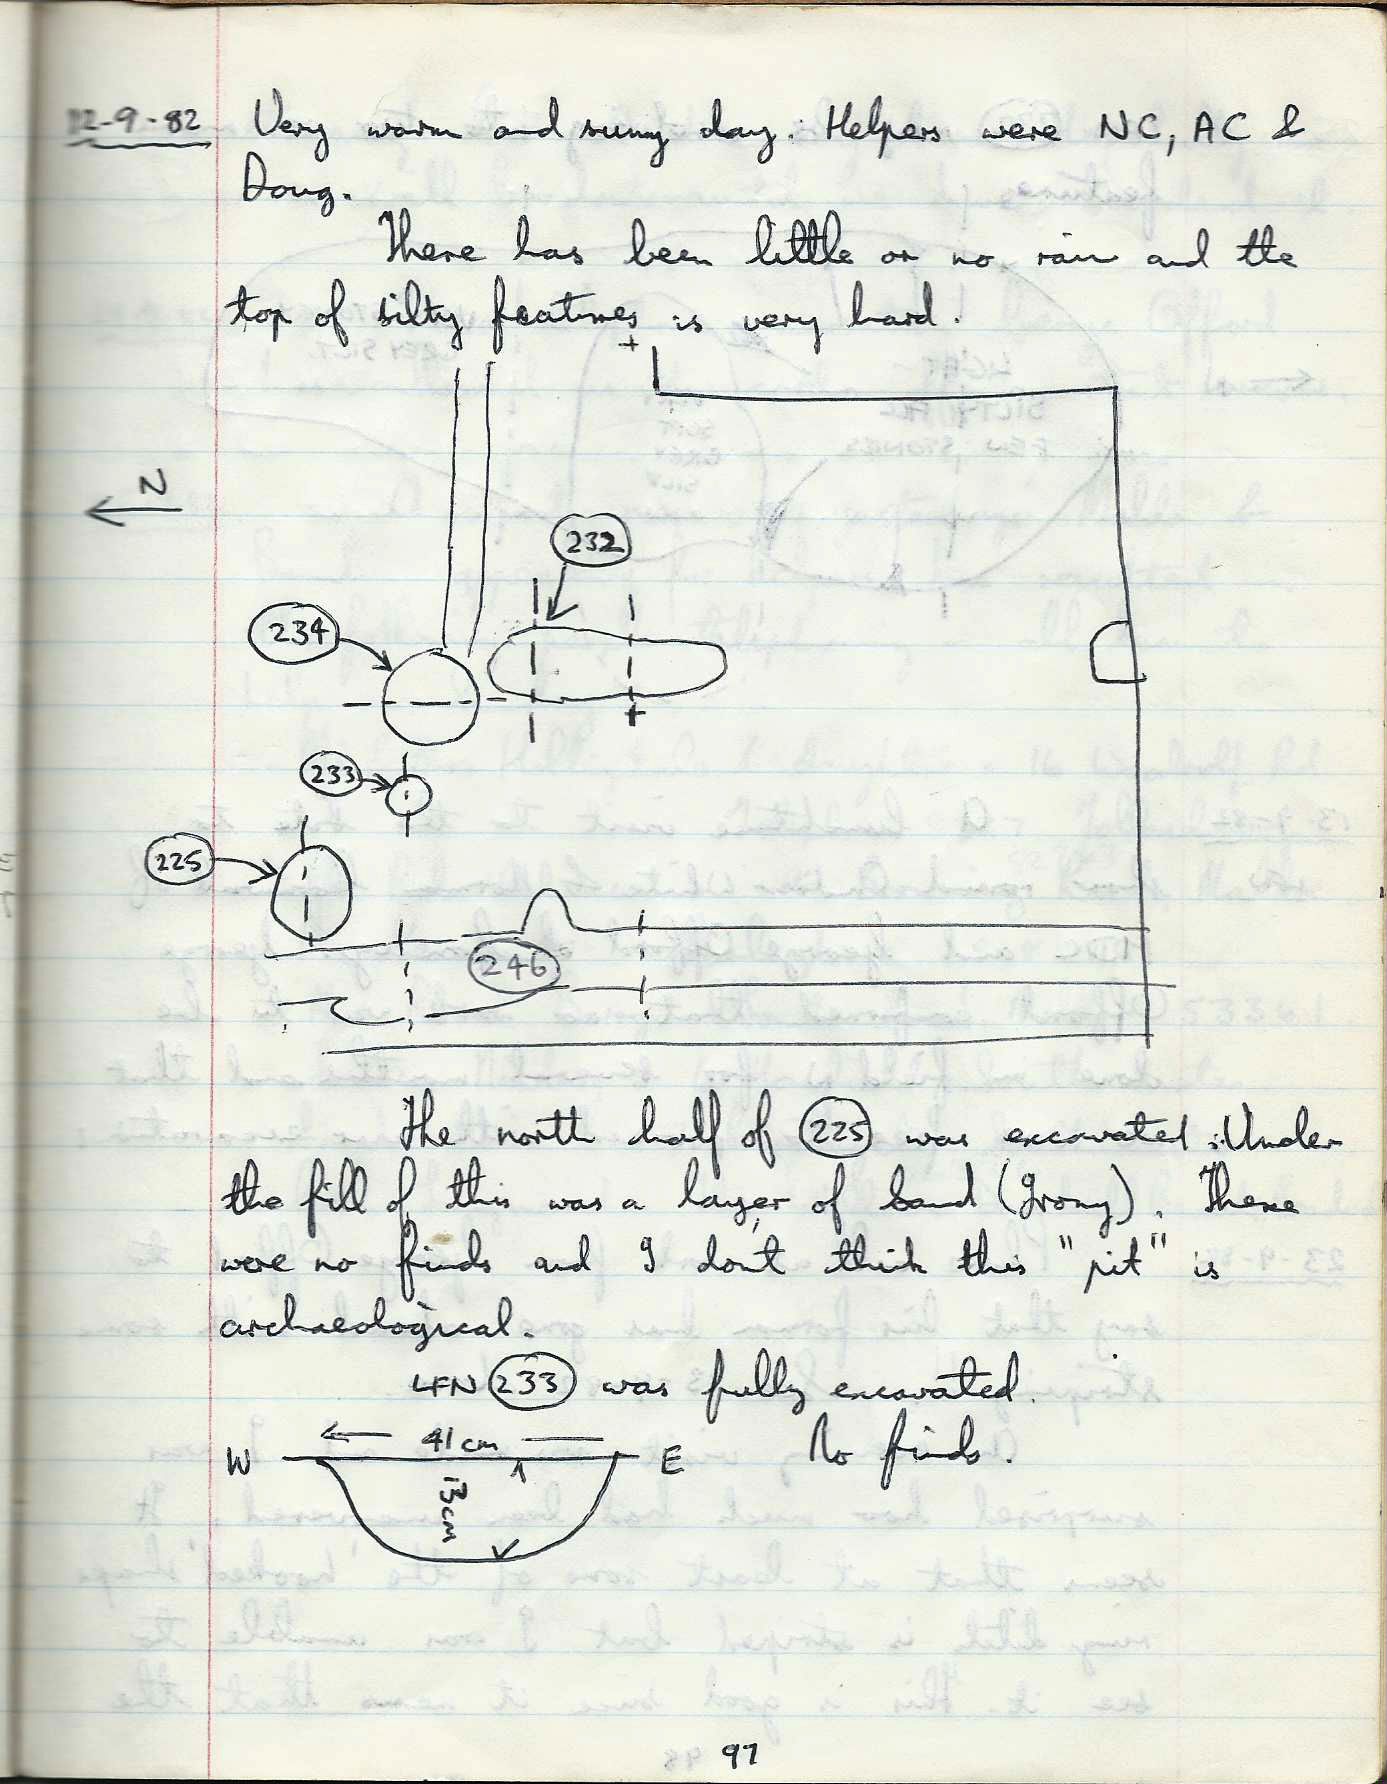 12-9-82 Very warm and sunny day. Helpers were NC, AC &
Doug.
There has been little or no rain and the
top of silty features is very hard.
N
232
234
233
225
246
The north half of 225 was excavated. Under
the fill of this was a layer of sand ( ). There
were no finds and I don't think this "pit" is
archaeological.
LFN 233 was fully excavated.
41cm
W E No finds.
13cm
97